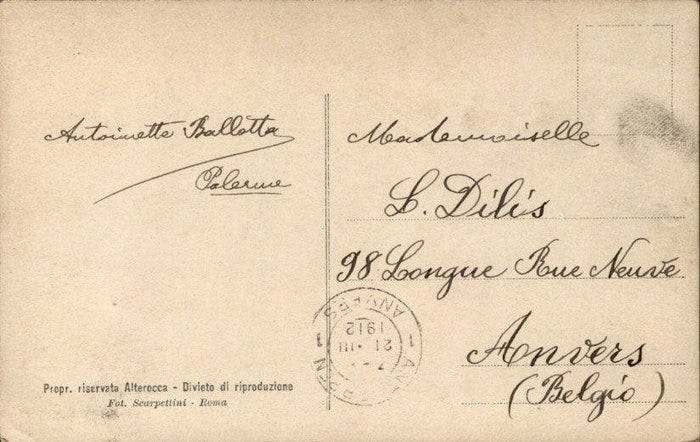 Antoinette Ballotta
Palerme
Mademoiselle
L. Diliis
98 Longue Rue Neuve
Anvers
(Belgio)
ANVERS
1 7- 1
21 III
1912
Propr. riservata Alterocca - Divieto di riproduzione
Fot. Scarpettini - Roma